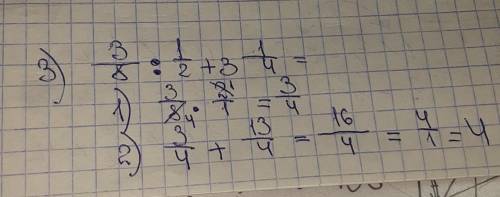 3) 3/8 : 1/2 + 3 1/4 =
1) 3/8 · 2/1 = 3/4
2) 3/4 + 13/4 = 16/4 = 4/1 = 4